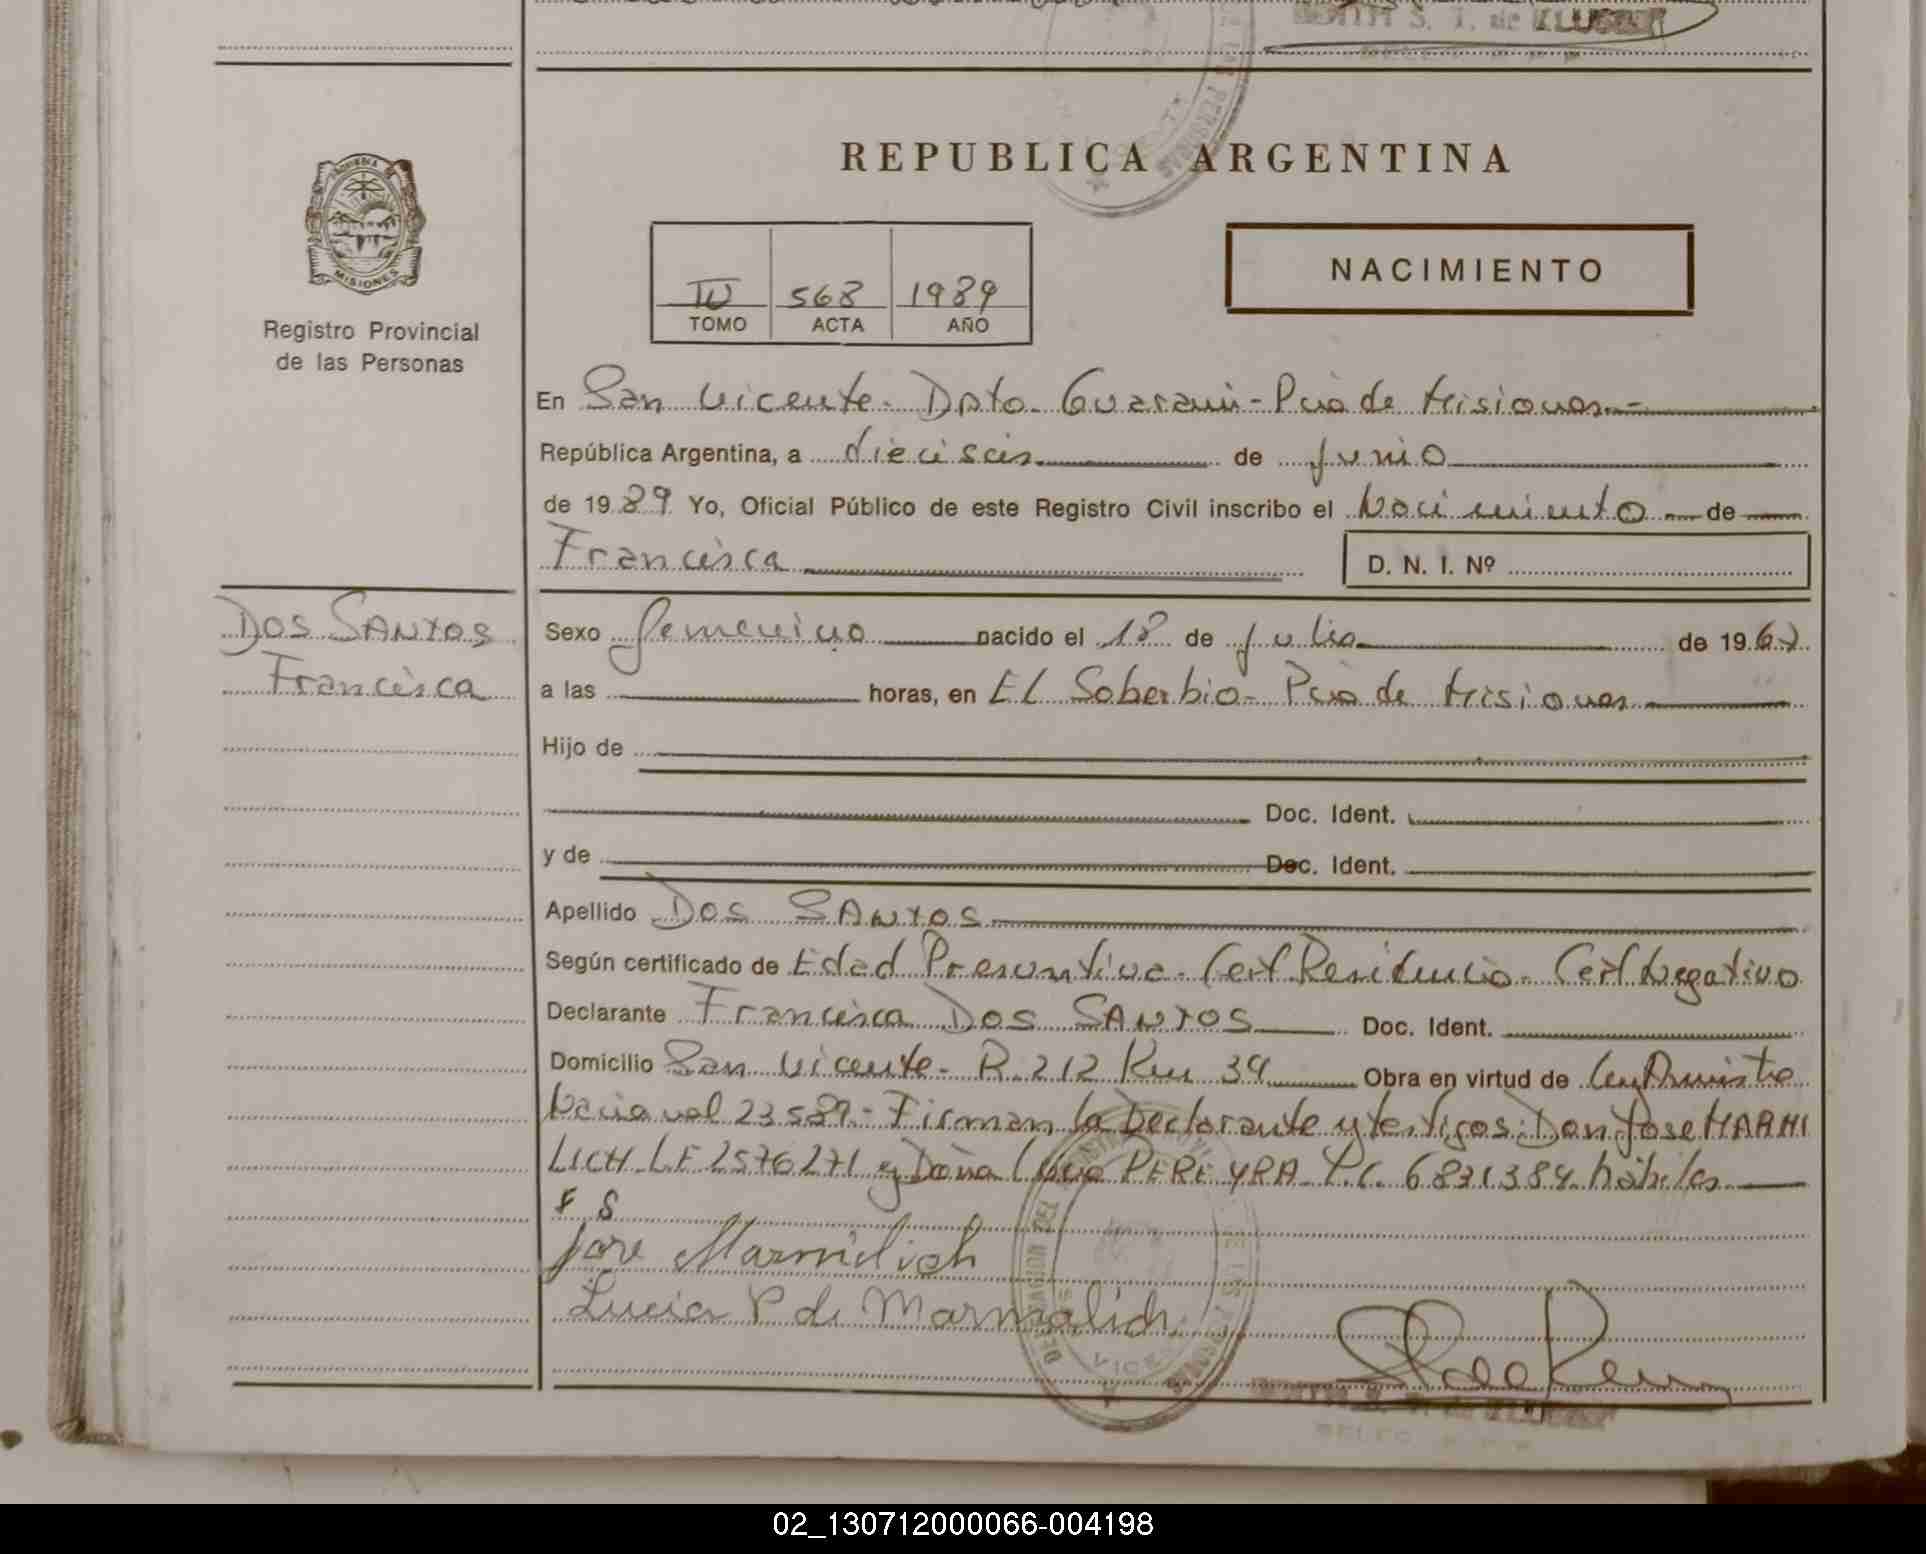 S. T. de
REPUBLICA ARGENTINA
MISIONES
Registro Provincial
de las Personas
IV 568 1989
TOMO ACTA AÑO
NACIMIENTO
En San Vicente - Dpto. Guarani - Pcia de Misiones -
República Argentina, a dieciseis de junio
de 1989 Yo, Oficial Público de este Registro Civil inscribo el Nacimiento de
Francisca D. N. I. Nº
Dos SANTOS
Francisca
Sexo femenino nacido el 18 de julio de 1967
a las horas, en El Soberbio - Pcia de Misiones
Hijo de
Doc. Ident.
y de Doc. Ident.
Apellido Dos SANTOS
Según certificado de Edad Presuntiva - Cert Residencia - Cert Negativo
Declarante Francisca Dos SANTOS Doc. Ident.
Domicilio San Vicente - R. 212 Km 39 Obra en virtud de Ley
Nacional 23589 - Firman la Declarante y testigos: Don Jose MARMI
LICH LE 2576271 y Doña PEREYRA L.C. 6831384 hábiles
F S
Jose Marmilich
Lucia P de Marmalich
VICENTE
S. T. de
02_130712000066-004198